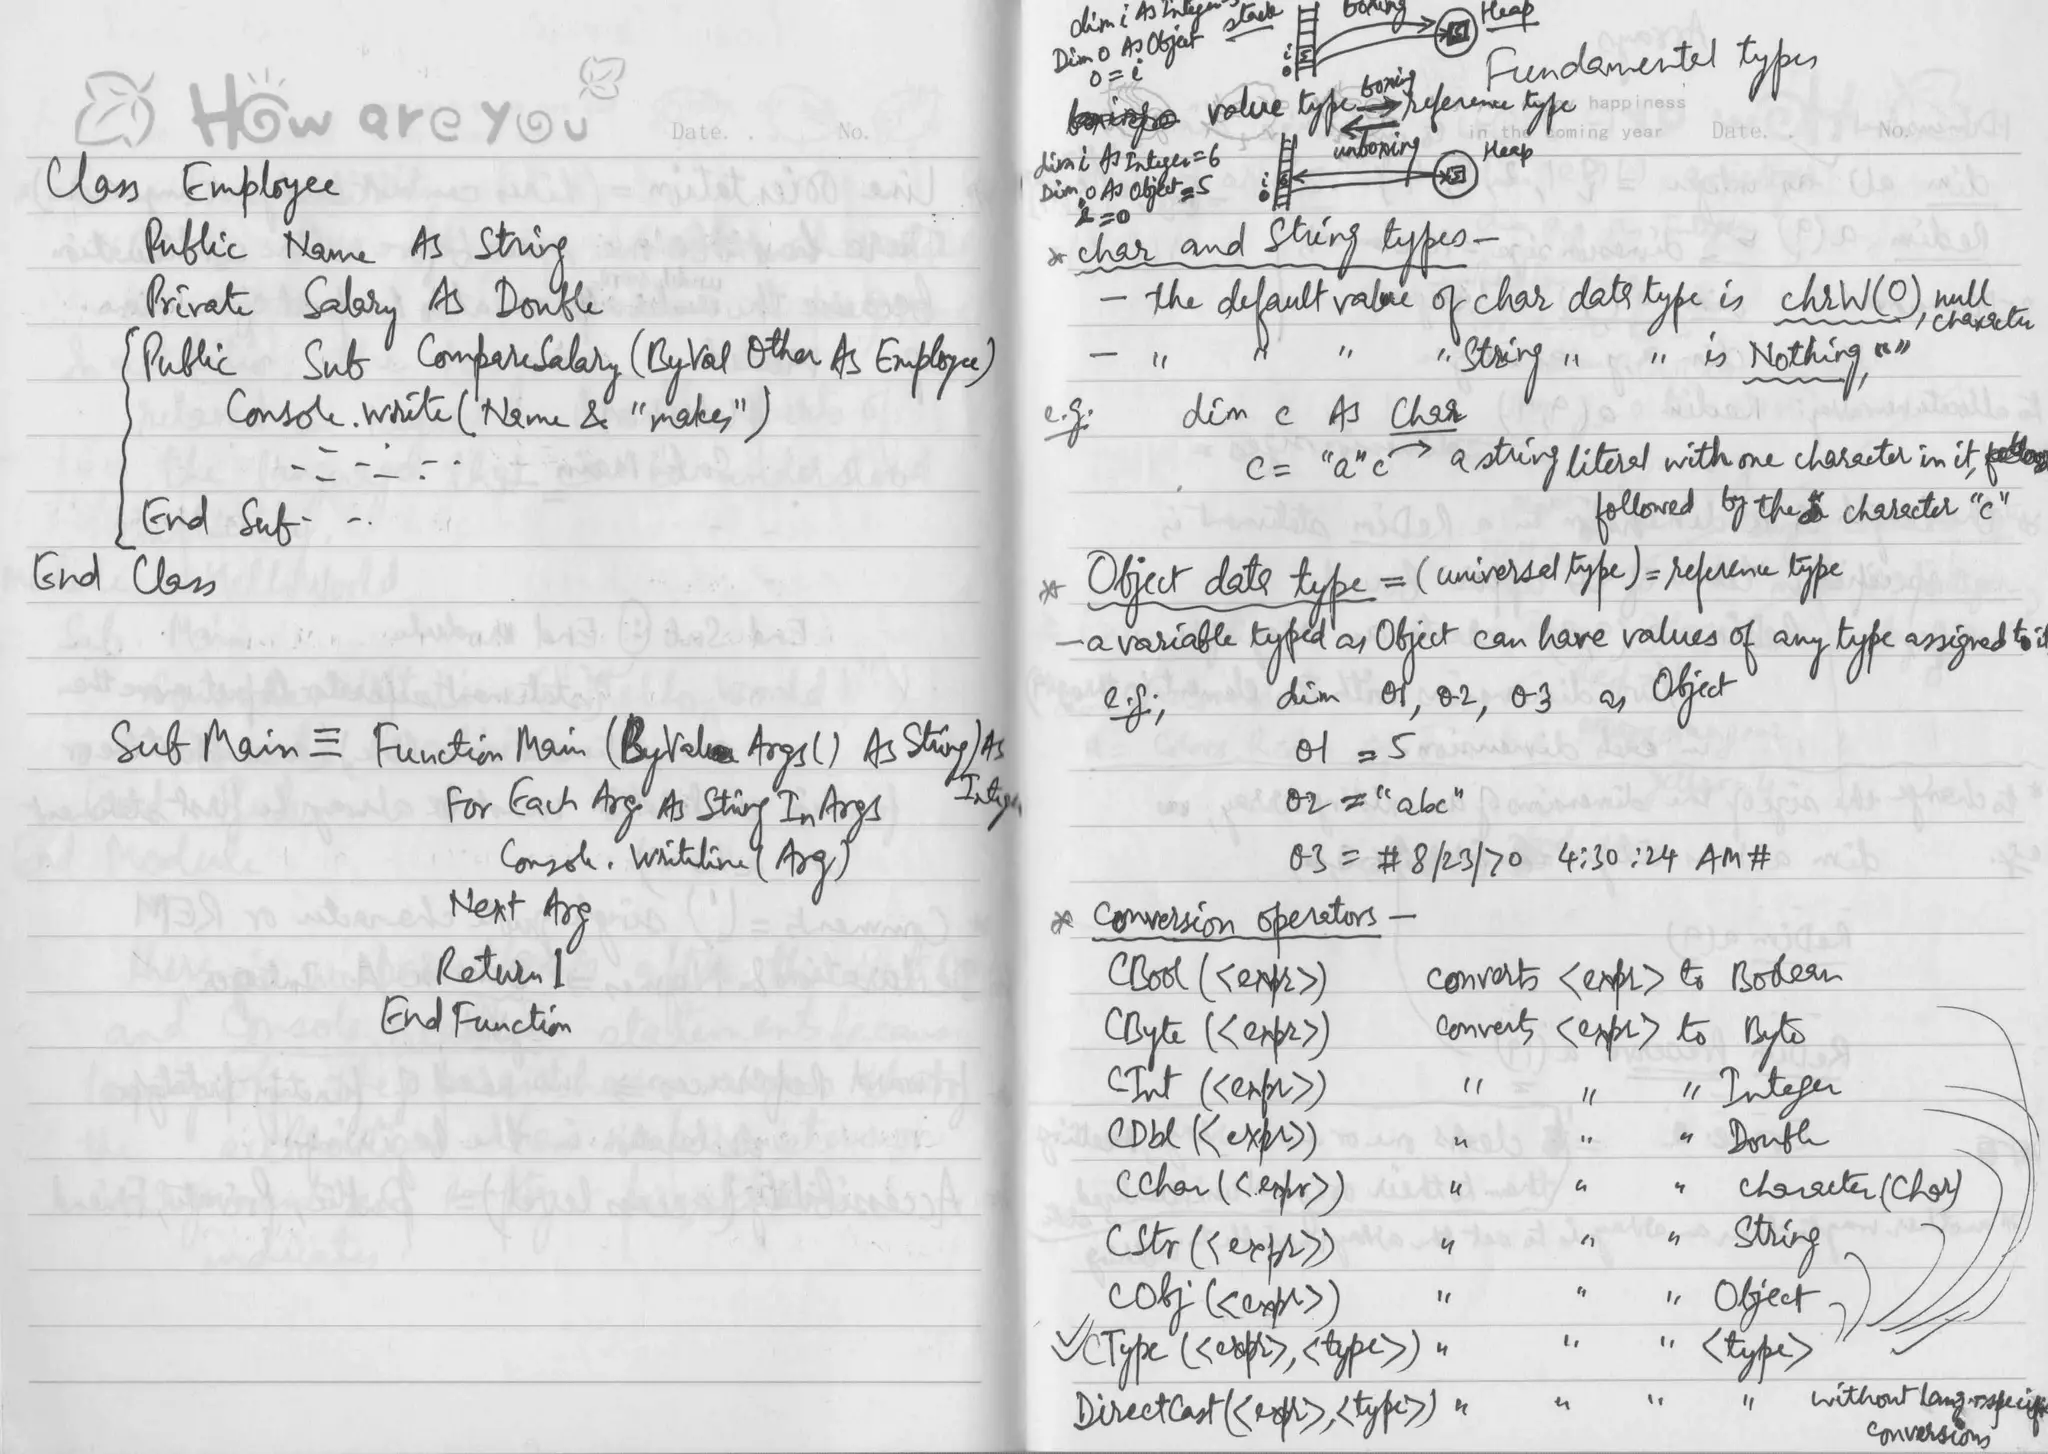 How are you
Date. . No.
Class Employee
Public Name As String
Private Salary As Double
Public Sub CompareSalary (ByVal Other As Employee)
Console.write(Name & "makes")
End Sub
End Class
Sub Main ≡ Function Main (ByVal Args() As String) As Integer
For Each Arg As String In Args
Console.writeline(Arg)
Next Arg
Return 1
End Function
dim i As Integer=5
Dim o As Object
o = i
stack
boxing
Heap
i
o
5
Fundamental types
value type boxing reference type
unboxing
happiness
in the coming year Date. . No.
dim i As Integer = 6
Dim o As Object = 5
i = o
i
o
Heap
* char and String types –
– the default value of char data type is chrW(0), null character
– " " " " String " " is Nothing, ""
e.g: dim c As Char
c = "a"c → a string literal with one character in it,
followed by the character "c"
* Object data type = (universal type) = reference type
– a variable typed as Object can have values of any type assigned to it
e.g:, dim o1, o2, o3 as Object
o1 = 5
o2 = "abc"
o3 = # 8/23/70 4:30:24 AM #
* Conversion operators –
CBool (<expr>) converts <expr> to Boolean
CByte (<expr>) converts <expr> to Byte
CInt (<expr>) " " " Integer
CDbl (<expr>) " " " Double
CChar (<expr>) " " " character (Char)
CStr (<expr>) " " " String
CObj (<expr>) " " " Object
CType (<expr>, <type>) " " " <type>
DirectCast (<expr>, <type>) " " " " without lang-specific
conversions